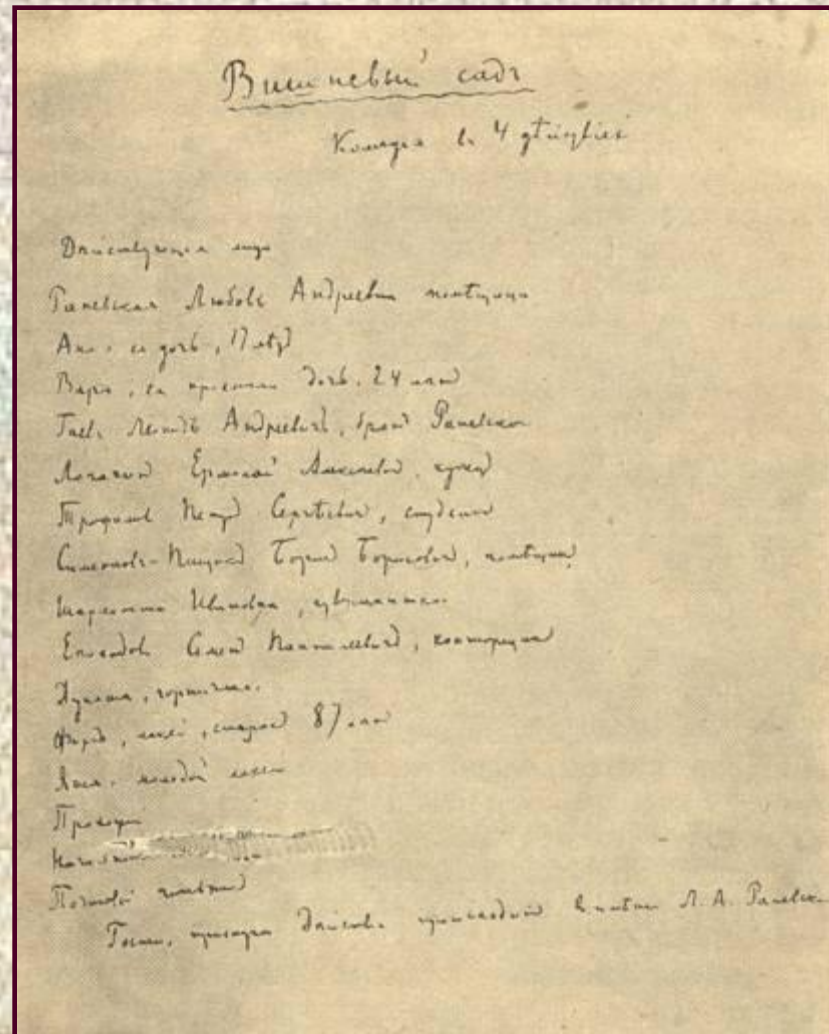 Вишневый садъ
Комедiя въ 4 дѣйствiяхъ
Дѣйствующiя лица
Раневская Любовь Андреевна помѣщица
Аня, ея дочь, 17 лѣтъ
Варя, ея прiемная дочь, 24 лѣтъ
Гаевъ Леонидъ Андреевичъ, братъ Раневской
Лопахинъ Ермолай Алексѣевичъ, купецъ
Трофимовъ Петръ Сергѣевичъ, студентъ
Симеоновъ-Пищикъ Борисъ Борисовичъ, помѣщикъ
Шарлотта Ивановна, гувернантка
Епиходовъ Семенъ Пантелѣевичъ, конторщикъ
Дуняша, горничная.
Фирсъ, лакей, старикъ 87 лѣтъ
Яша, молодой лакей
Прохожiй
Почтовый чиновникъ
Гости, прислуга Дѣйствiе происходитъ въ имѣнiи Л. А. Раневской